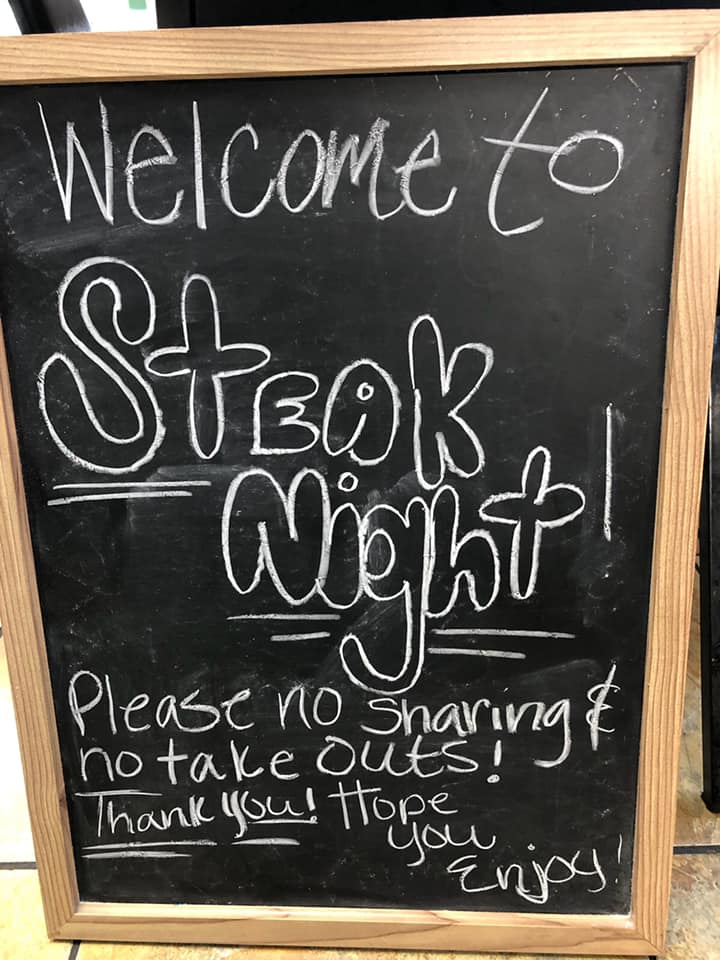 Welcome to
Steak
Night!
Please no sharing &
no take outs!
Thank you! Hope
you
Enjoy!